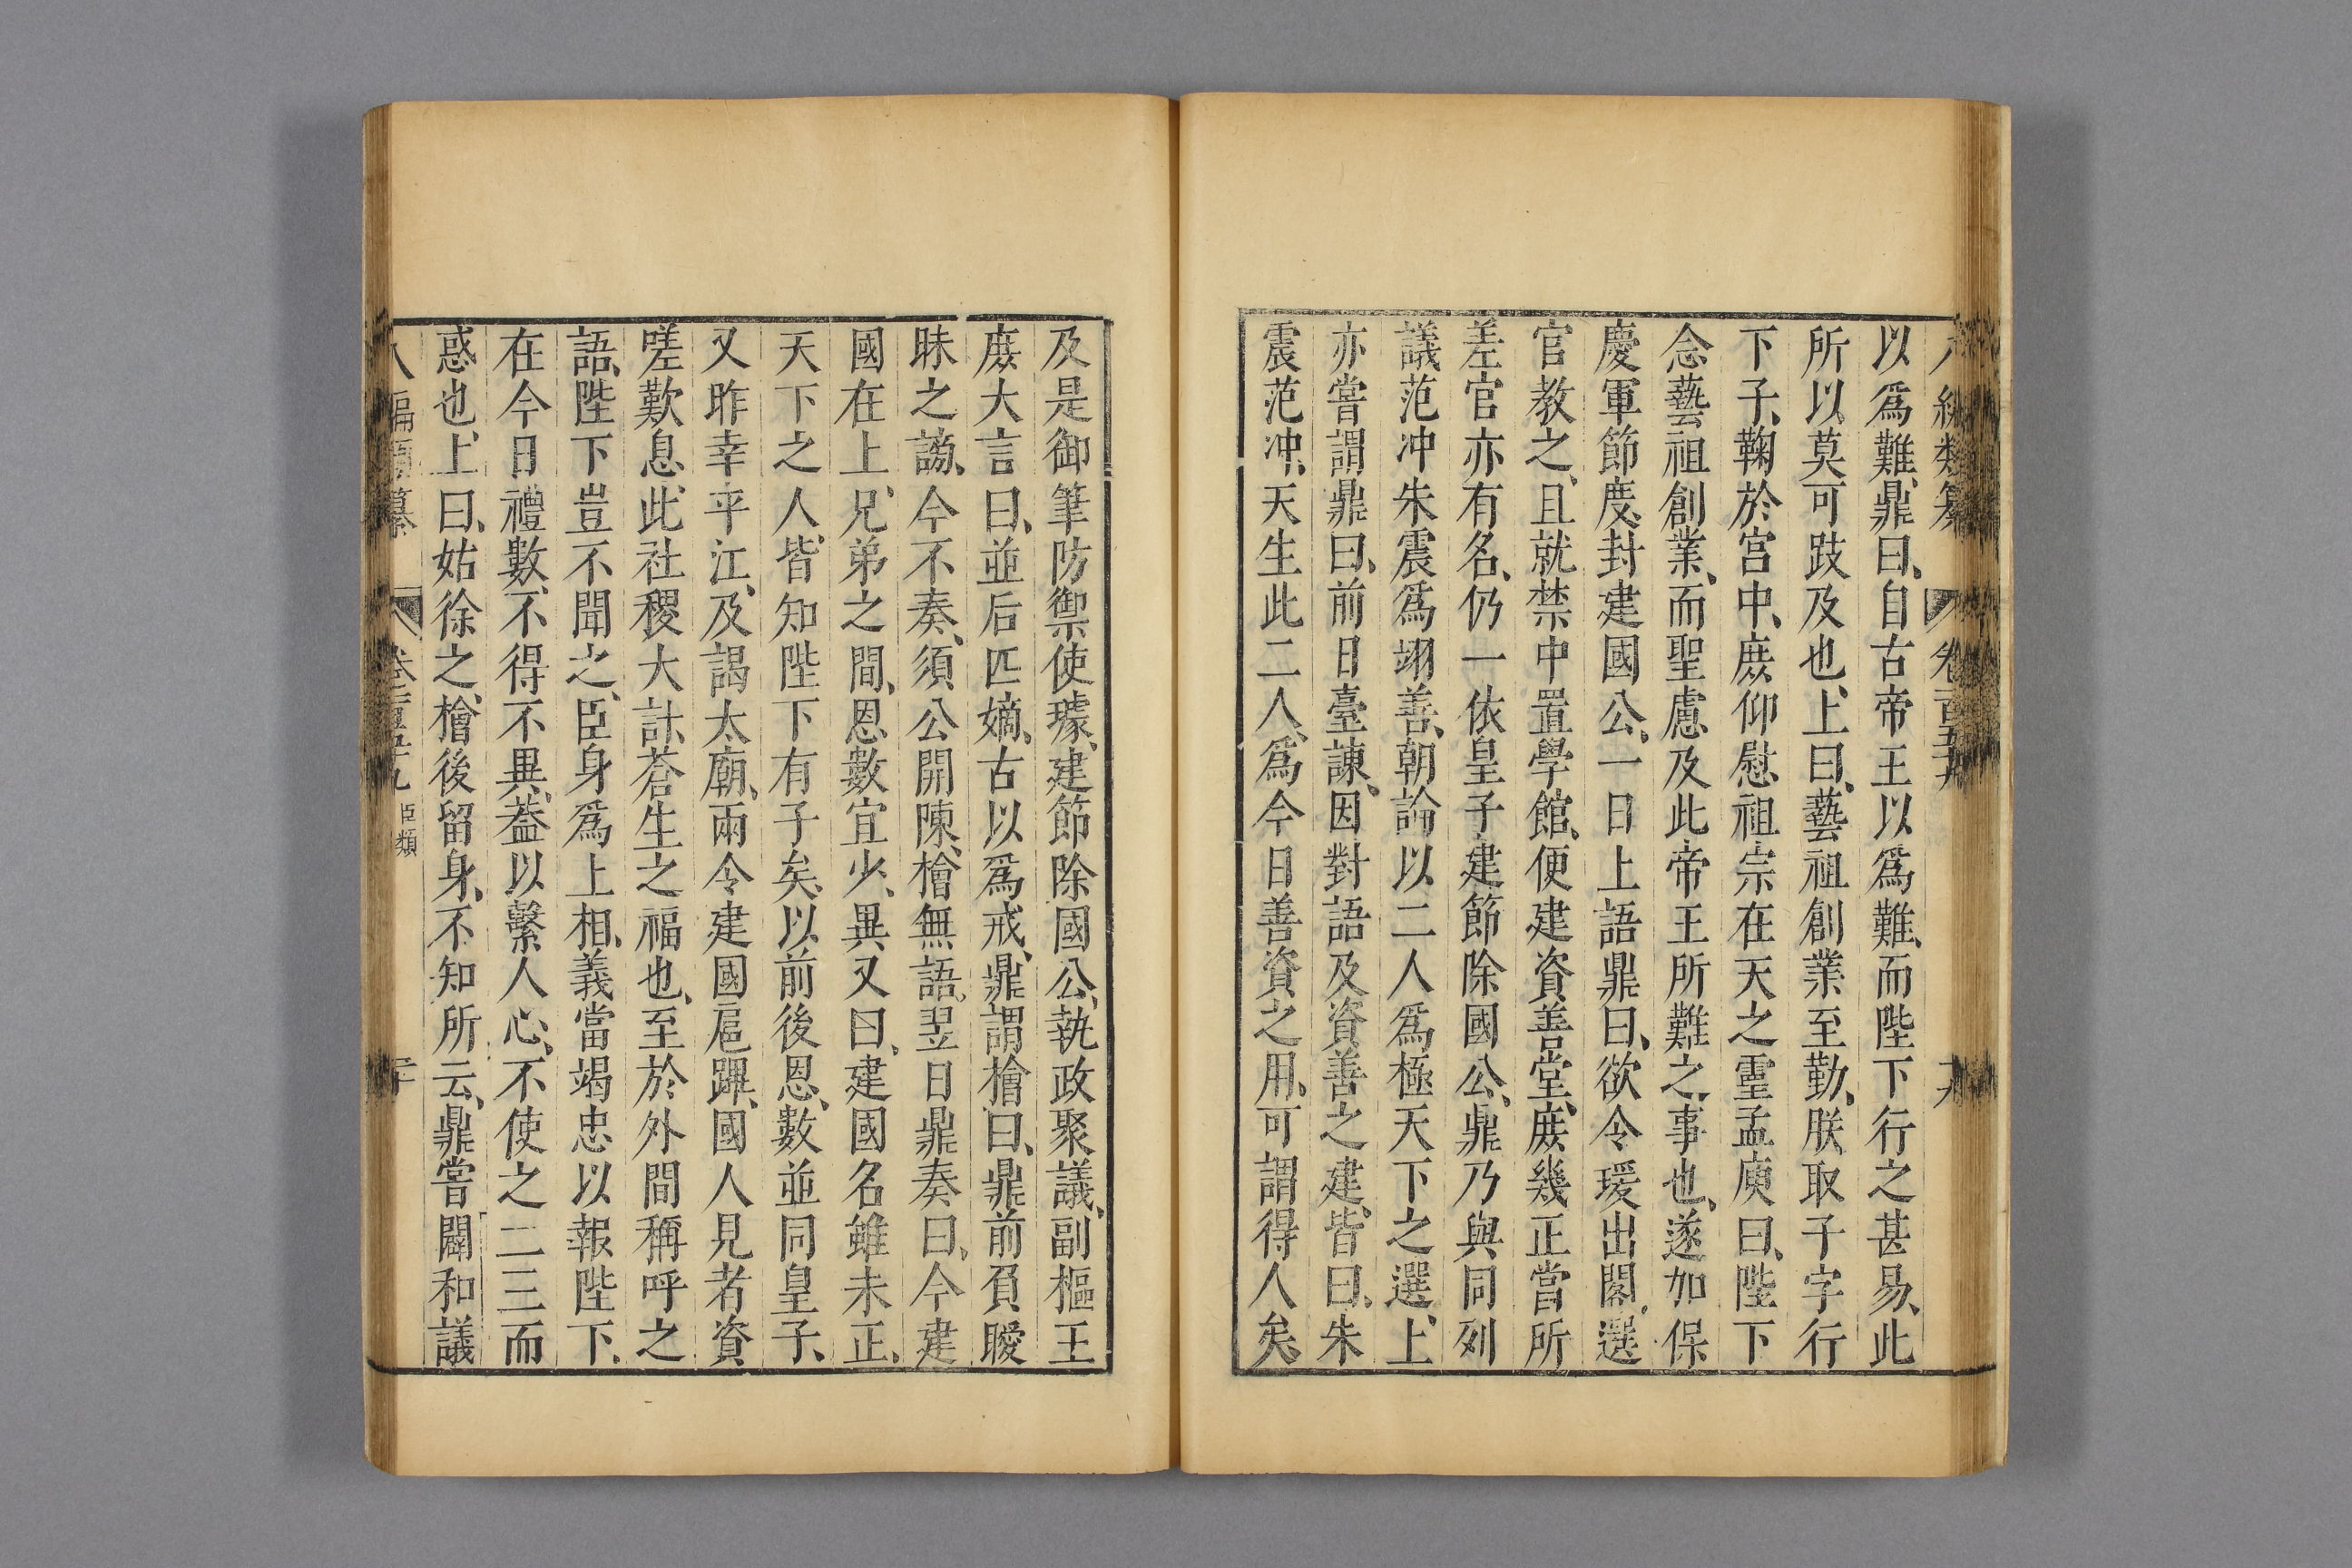 以爲難、鼎曰、自古帝王以爲難、而陛下行之甚易、此
所以莫可跂及也、上曰、藝祖創業至勤、朕取子字行
下子、鞠於宮中、庻仰慰祖宗在天之靈、孟庾曰、陛下
念藝祖創業、而聖慮及此、帝王所難之事也、遂加保
慶軍節度、封建國公、一日上語鼎曰、欲令瑗出閣、選
官教之、且就禁中置學館、便建資善堂、庻幾正當所
差官亦有名、仍一依皇子建節除國公、鼎乃與同列
議范冲朱震爲翊善、朝論以二人爲極天下之選、上
亦嘗謂鼎曰、前日臺諫、因對語及資善之建、皆曰、朱
震范冲、天生此二人、爲今日善資之用、可謂得人矣、
及是御筆防禦使璩、建節除國公、執政聚議、副樞王
庻大言曰、並后匹嫡、古以爲戒、鼎謂檜曰、鼎前負曖
昧之謗、今不奏、須公開陳、檜無語、翌日鼎奏曰、今建
國在上、兄弟之間、恩數宜少、異又曰、建國名雖未正、
天下之人、皆知陛下有子矣、以前後恩、數並同皇子、
又昨幸平江、及謁太廟、兩令建國扈蹕、國人見者資
嗟歎息、此社稷大計、蒼生之福也、至於外間稱呼之
語、陛下豈不聞之、臣身爲上相、義當竭忠以報陛下、
在今日禮數、不得不異、葢以繫人心、不使之二三而
惑也、上曰、姑徐之、檜後留身、不知所云、鼎嘗闢和議
八編類纂 臣類